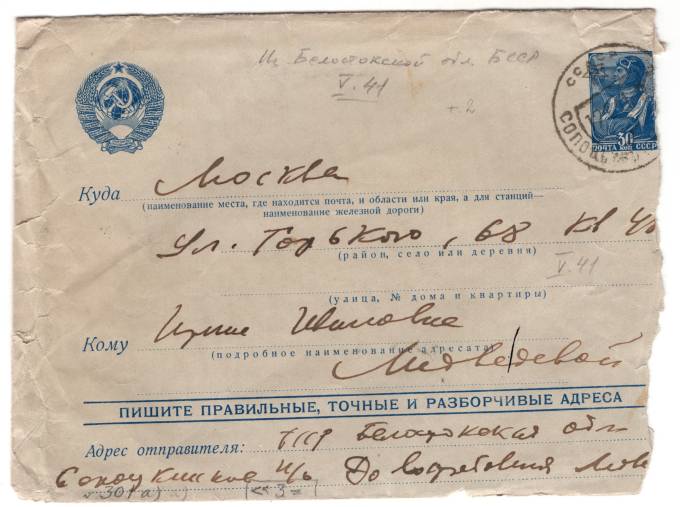 Из Белостокской обл. БССР
V.41
+2
30
ПОЧТА КОП СССР
Куда Москва
(наименование места, где находится почта, и области или края, а для станций—
наименование железной дороги)
ул. Горького, 68 кв
(район, село или деревня)
V.41
(улица, № дома и квартиры)
Кому
(подробное наименование адресата)
Медведевой
ПИШИТЕ ПРАВИЛЬНЫЕ, ТОЧНЫЕ И РАЗБОРЧИВЫЕ АДРЕСА
Адрес отправителя: Белостокская обл
До востребования